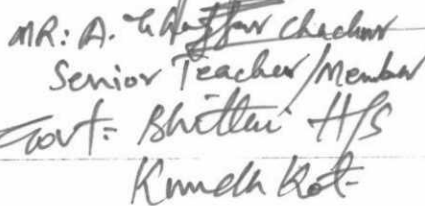 MR: A. Ghaffar Chachar
Senior Teacher/Member
Govt: Bhittai H/S
Kandh Kot-